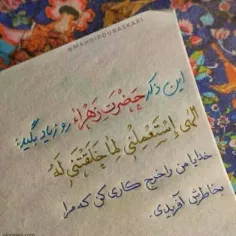 @MAHDIPOURASKARI
این ذکر حَضْرَتِ زَهْراء رو زیاد بگید:
الهی اِسْتَعْمِلْنی لِما خَلَقْتَنی لَهُ
خدایا من را خرج کاری کن که مرا
بخاطرش آفریدی.